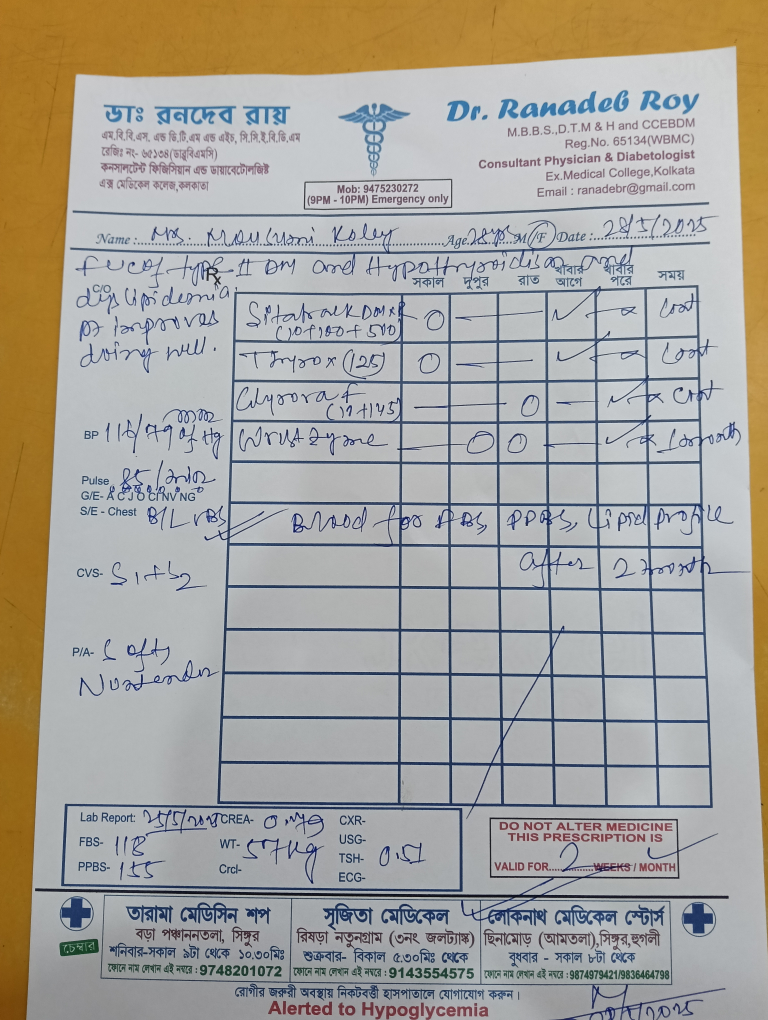 ডাঃ রনদেব রায়
এম,বি,বি,এস, এন্ড ডি,টি,এম এন্ড এইচ, সি,সি,ই,বি,ডি,এম
রেজিঃ নং- ৬৫১৩৪(ডাব্লুবিএমসি)
কনসালটেন্ট ফিজিসিয়ান এন্ড ডায়াবেটোলজিষ্ট
এক্স মেডিকেল কলেজ,কলকাতা
Mob: 9475230272
(9PM - 10PM) Emergency only
Dr. Ranadeb Roy
M.B.B.S.,D.T.M & H and CCEBDM
Reg.No. 65134(WBMC)
Consultant Physician & Diabetologist
Ex.Medical College,Kolkata
Email : ranadebr@gmail.com
Name : Mrs. Moushumi Koley Age 28 yrs M/F Date : 28/5/2025
F/U C of type-II DM and Hypothyroidism and
C/O dyslipidemia
Rx
pt improves
doing well.
সকাল দুপুর রাত খাবার আগে খাবার পরে সময়
(10+100+500) Cont
Thyrox (125) Cont
Cont
1 month
BP 116/79 mm of Hg
Pulse 85/min
G/E- A C J O CI NV NG
S/E - Chest B/L VBS
Blood for FBS, PPBS, Lipid Profile
after 2 month
CVS- S1+S2
P/A- Soft,
Nontender
Lab Report: 25/5/2025 CREA- 0.79 CXR-
FBS- 118 WT- 57kg USG-
PPBS- 155 Crcl- TSH- 0.51
ECG-
DO NOT ALTER MEDICINE
THIS PRESCRIPTION IS
VALID FOR 2 WEEKS / MONTH
চেম্বার
তারামা মেডিসিন শপ
বড়া পঞ্চাননতলা, সিঙ্গুর
শনিবার-সকাল ৯টা থেকে ১০.৩০মিঃ
ফোনে নাম লেখান এই নম্বরে : 9748201072
সৃজিতা মেডিকেল
রিষড়া নতুনগ্রাম (৩নং জলট্যাঙ্ক)
শুক্রবার- বিকাল ৫.৩০মিঃ থেকে
ফোনে নাম লেখান এই নম্বরে : 9143554575
লোকনাথ মেডিকেল স্টোর্স
ছিনামোড় (আমতলা),সিঙ্গুর,হুগলী
বুধবার - সকাল ৮টা থেকে
ফোনে নাম লেখান এই নম্বরে : 9874979421/9836464798
রোগীর জরুরী অবস্থায় নিকটবর্ত্তী হাসপাতালে যোগাযোগ করুন।
Alerted to Hypoglycemia